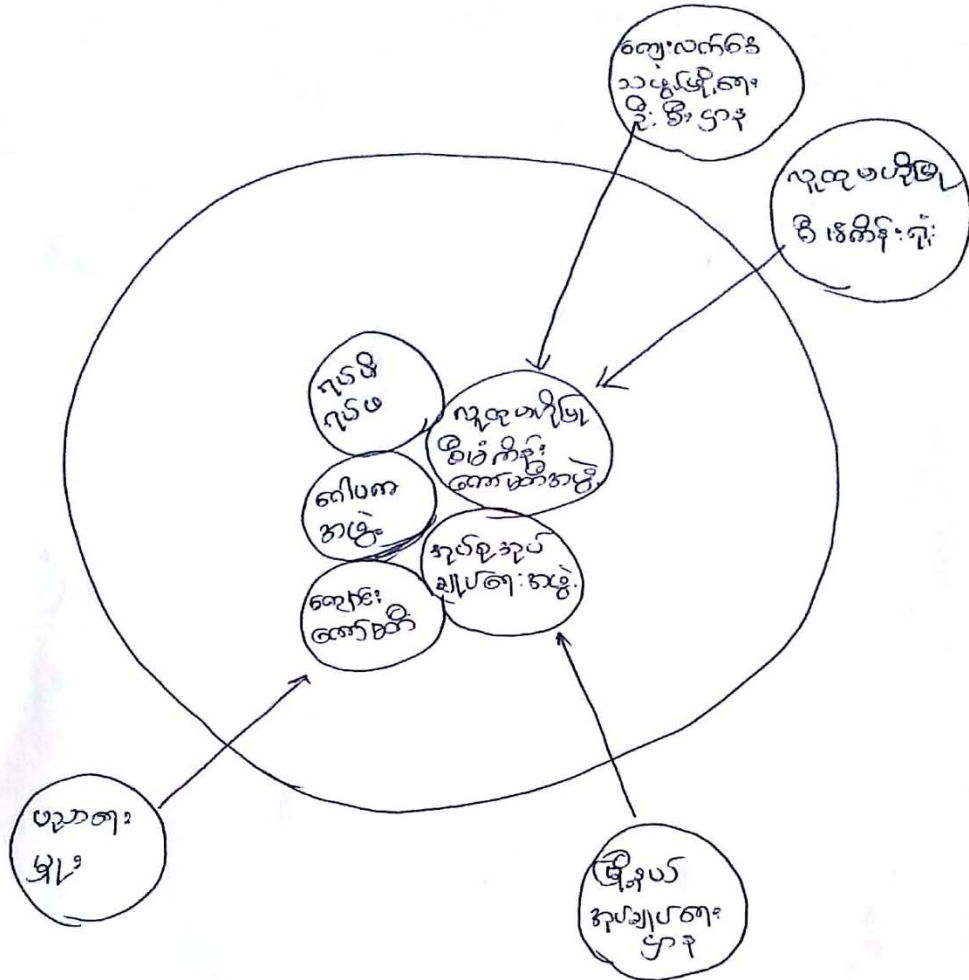 ကျေးလက်ဒေ
သဖွံ့ဖြိုးရေး
ဦးစီးဌာန
လူထုဗဟိုပြု
စီမံကိန်းရုံး
ရပ်မိ
ရပ်ဖ
လူထုဗဟိုပြု
စီမံကိန်း
ကော်မတီအဖွဲ့
ဂေါပက
အဖွဲ့
အုပ်စုအုပ်
ချုပ်ရေးအဖွဲ့
ကျောင်း
ကော်မတီ
ပညာရေး
မှူး
မြို့နယ်
အုပ်ချုပ်ရေး
ဌာန